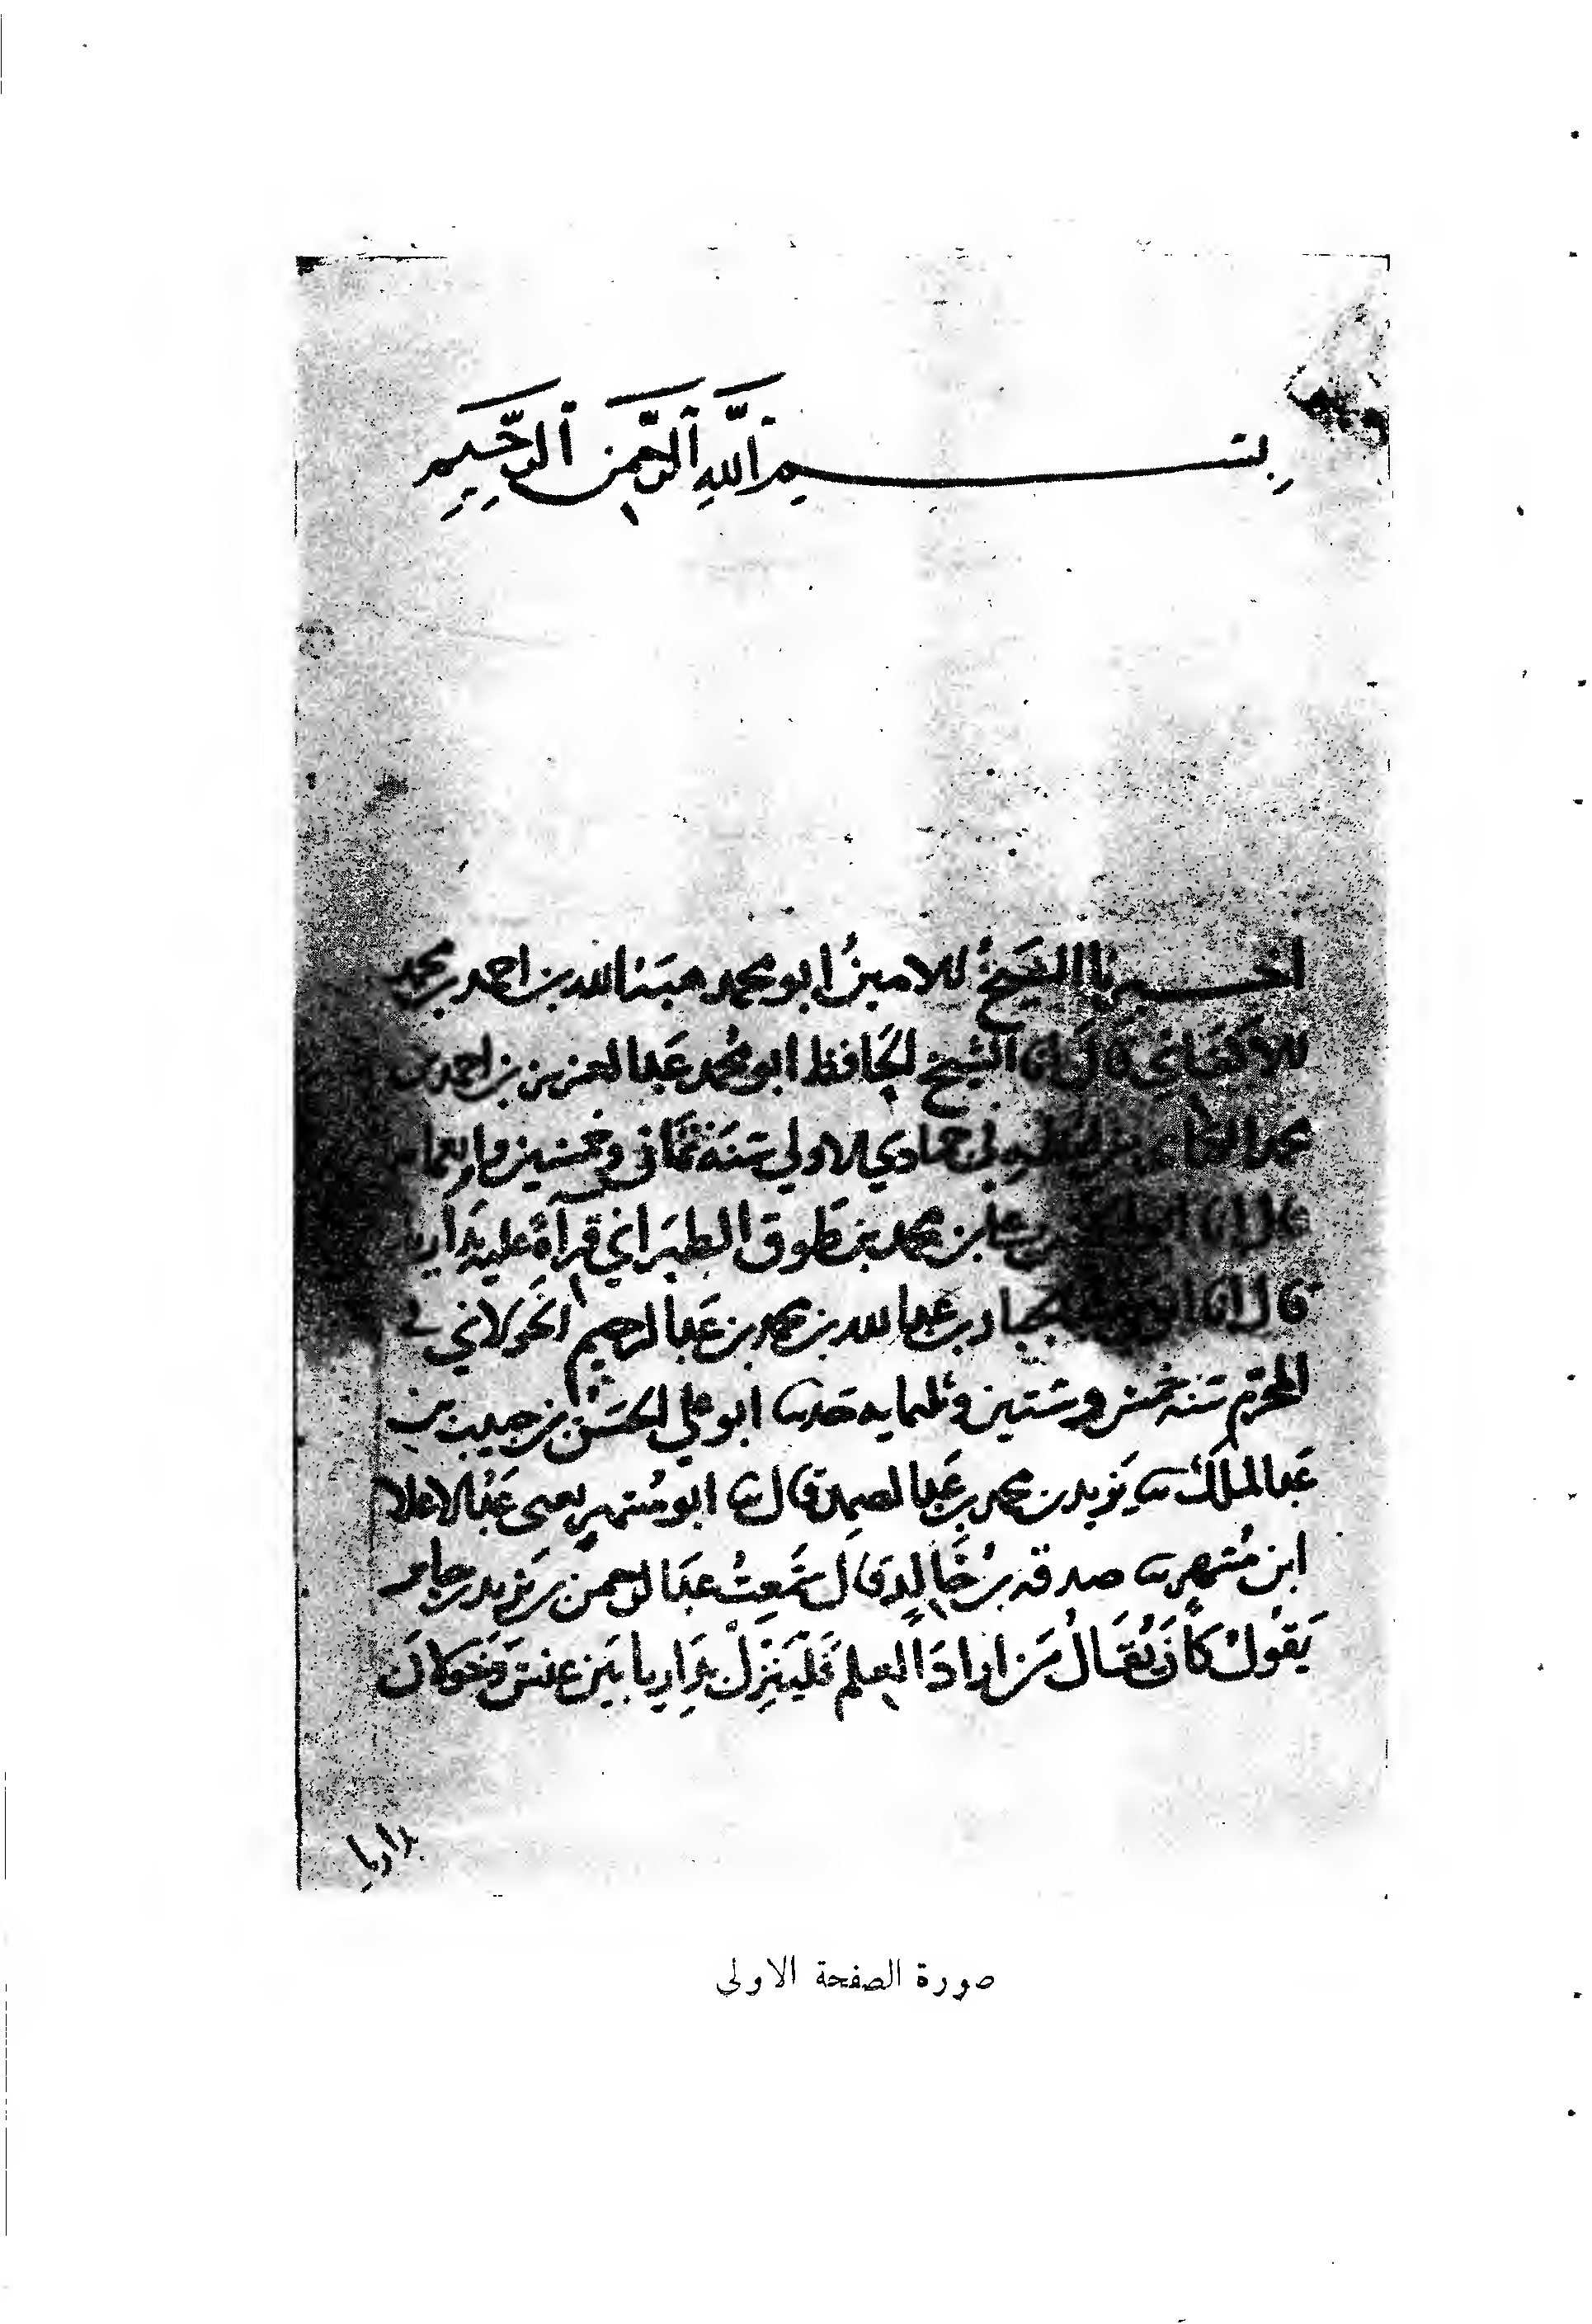 بِسْمِ ٱللَّهِ ٱلرَّحْمٰنِ ٱلرَّحِيمِ
اخبرنا الشيخُ الامينُ ابو محمد هبة الله بن احمد بن محمد
الاكفاني قَالَ انا الشيخ الحَافظ ابو محمد عَبدالعزيز بن احمد بن
محمد في جمادي الاولي سَنَة ثمَانٍ وخمسين واربعمائة
قال انا علي بن محمد بن طَوق الطبَراني قرآةً عليه بدَاريا
قال انا عبد الجبار بن عبدالله بن محمد بن عَبدالرحيم الخَولاني في
المحرّم سَنة خمس وسَتين وثلثمايه حَدثنا ابو علي الحسَن بن حبيب بن
عَبدالملك ثنا يَزيد بن محمد بن عَبدالصمد قال ثنا ابو مُسْهرٍ يعني عَبْدالاعلا
ابن مُسْهرٍ ثنا صدقه بنُ خَالِدٍ قَالَ سَمعِتُ عَبدَالرحمن بن يزيد بن جابر
يَقولُ كَانَ يُقَالُ مَن ارادَ العِلم فَليَنزِلْ بدَارِيا بَين عنسٍ وَخَولَان
بداريا
صورة الصفحة الاولى